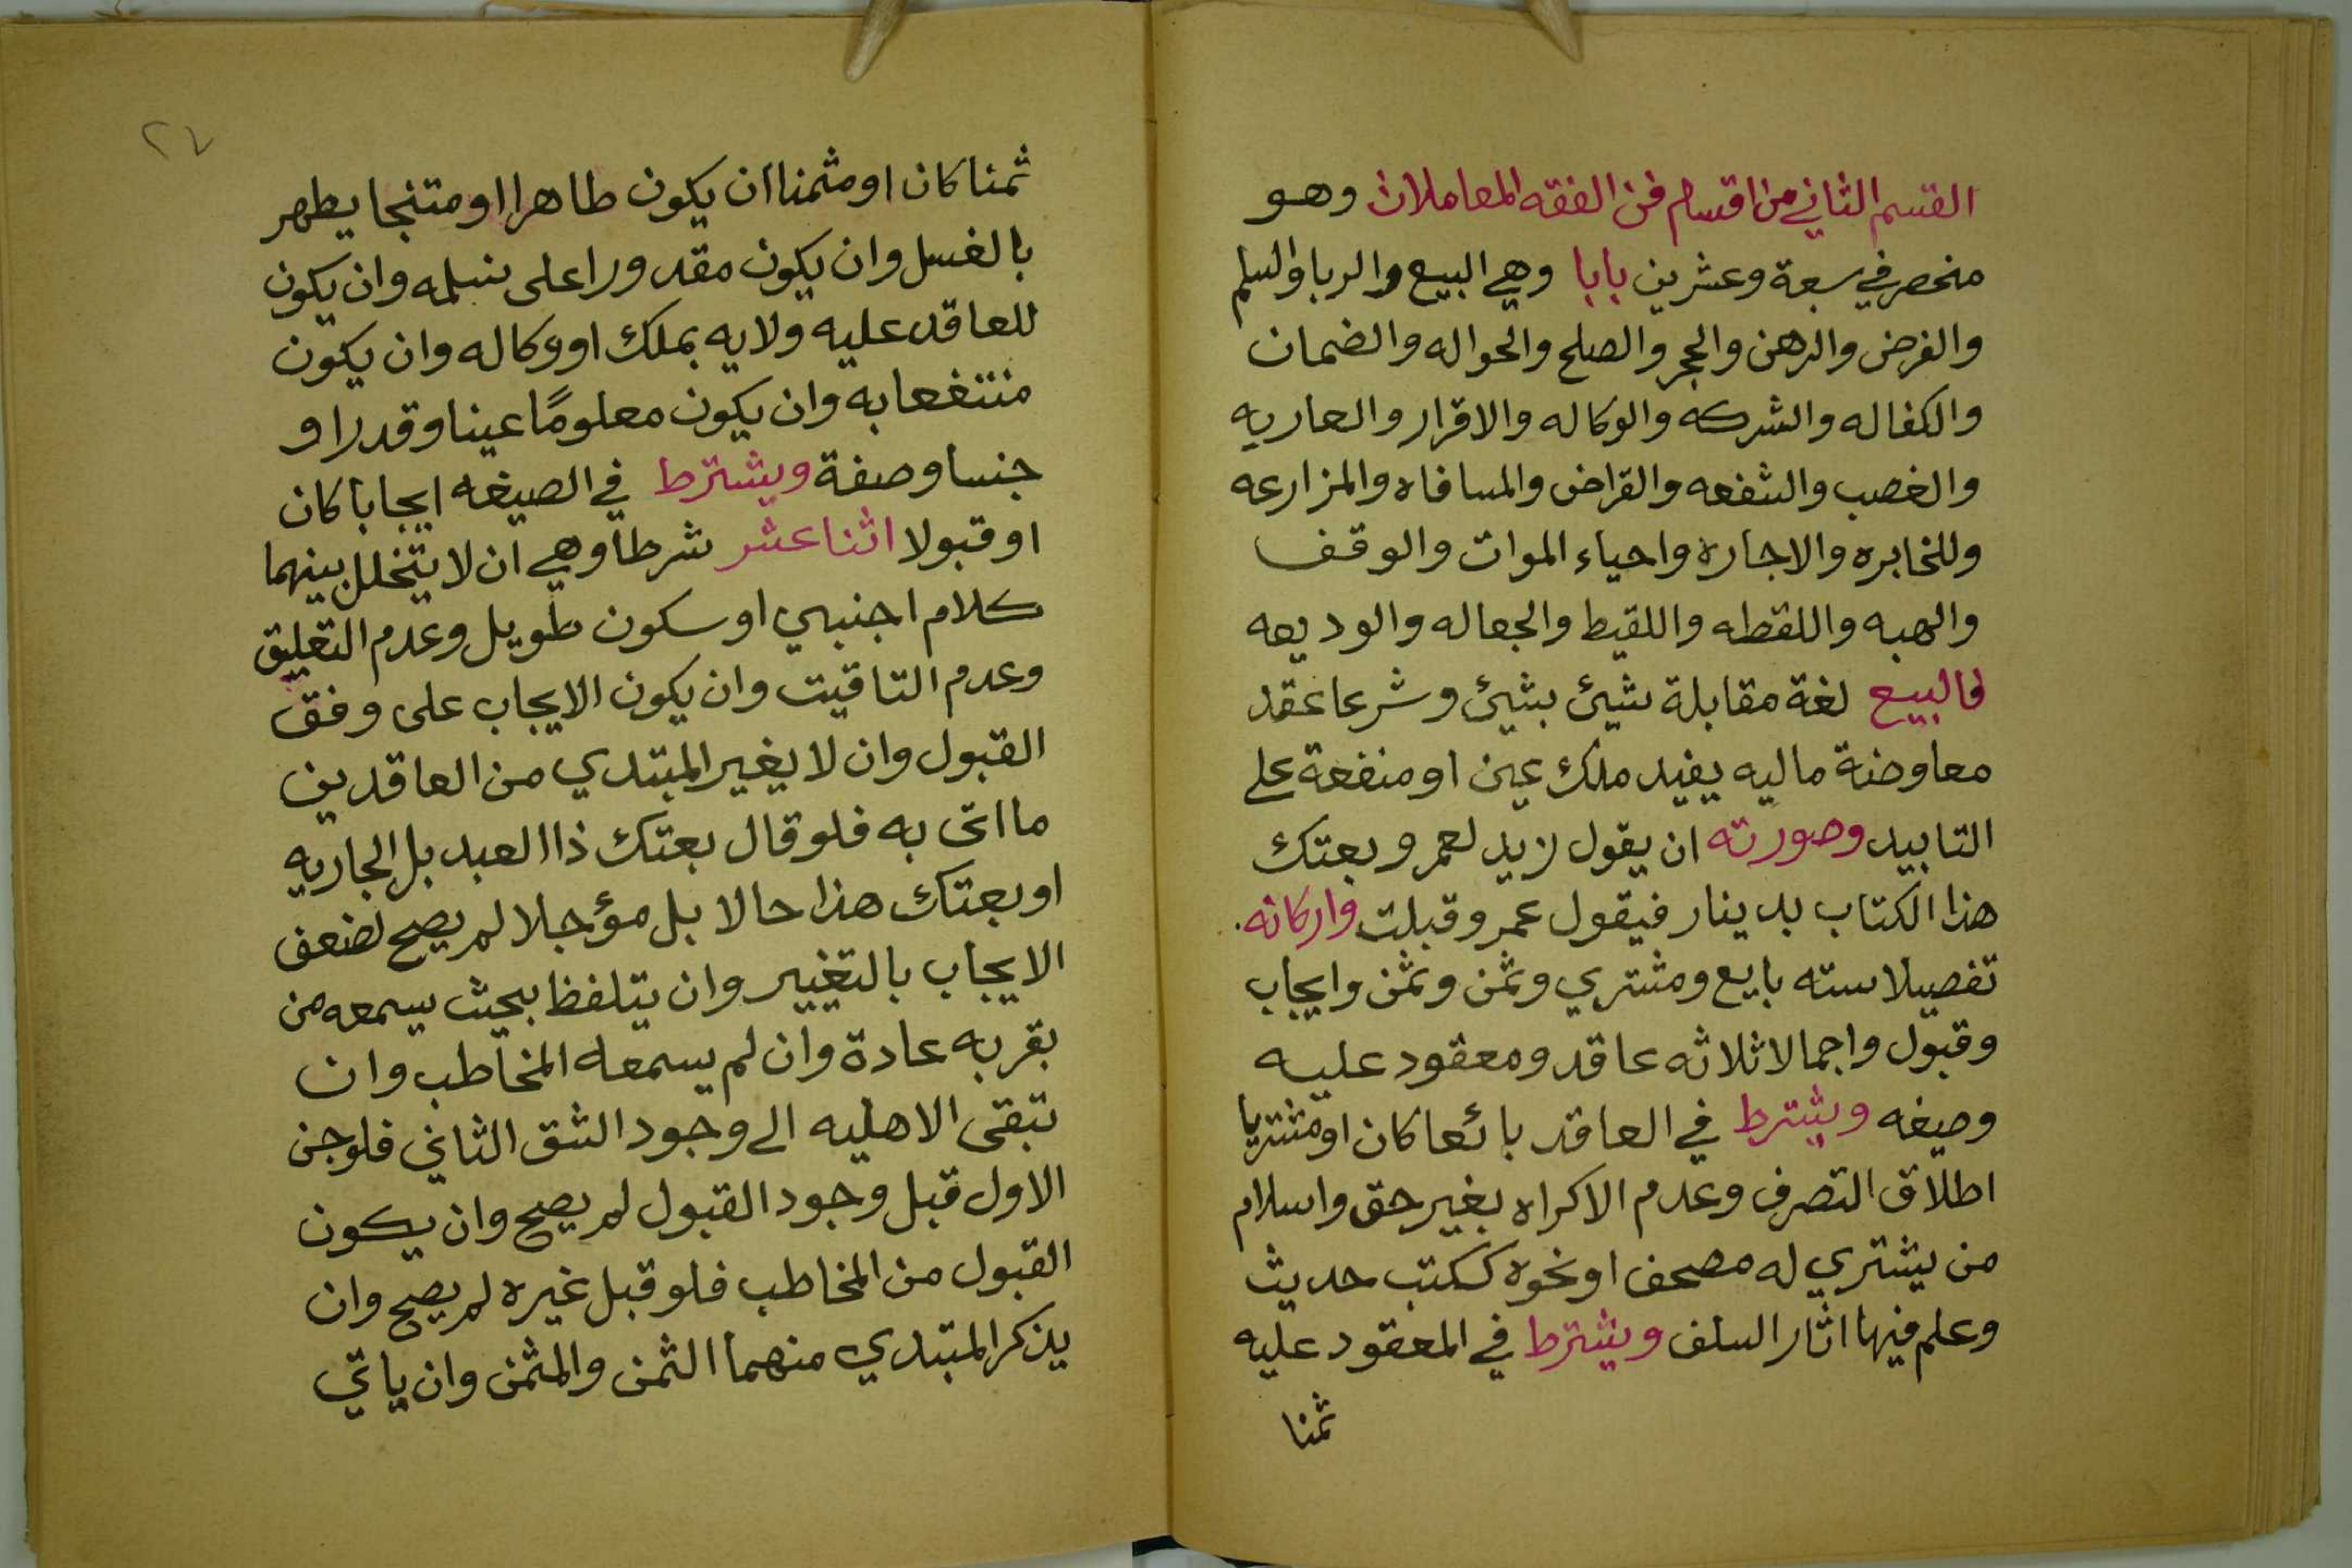 القسم الثاني من اقسام فن الفقه المعاملات وهو
منحصر في سبعة وعشرين بابا وهي البيع والربا والسلم
والقرض والرهن والحجر والصلح والحواله والضمان
والكفاله والشركه والوكاله والاقرار والعاريه
والغصب والشفعه والقراض والمساقاه والمزارعه
والمخابره والاجاره واحياء الموات والوقف
والهبه واللقطه واللقيط والجعاله والوديعه
فالبيع لغة مقابلة شيئ بشيئ وشرعا عقد
معاوضة ماليه يفيد ملك عين او منفعة على
التابيد وصورته ان يقول زيد لعمرو بعتك
هذا الكتاب بدينار فيقول عمرو قبلت واركانه
تفصيلا سته بايع ومشتري وثمن وثمن وايجاب
وقبول واجمالا ثلاثه عاقد ومعقود عليه
وصيغه ويشترط في العاقد بائعا كان او مشتريا
اطلاق التصرف وعدم الاكراه بغير حق واسلام
من يشتري له مصحف او نحوه ككتب حديث
وعلم فيها اثار السلف ويشترط في المعقود عليه
ثمنا
٢٧
ثمنا كان او مثمنا ان يكون طاهرا او متنجا يطهر
بالغسل وان يكون مقدورا على تسلمه وان يكون
للعاقد عليه ولايه بملك او وكاله وان يكون
منتفعا به وان يكون معلومًا عينا وقدرا و
جنسا وصفة ويشترط في الصيغه ايجابا كان
او قبولا اثنا عشر شرطا وهي ان لا يتخلل بينهما
كلام اجنبي او سكون طويل وعدم التعليق
وعدم التاقيت وان يكون الايجاب على وفق
القبول وان لا يغير المبتدي من العاقدين
ما اتى به فلو قال بعتك ذا العبد بل الجاريه
او بعتك هذا حالا بل مؤجلا لم يصح لضعف
الايجاب بالتغيير وان يتلفظ بحيث يسمعه من
بقربه عادة وان لم يسمعه المخاطب وان
تبقى الاهليه الى وجود الشق الثاني فلو جن
الاول قبل وجود القبول لم يصح وان يكون
القبول من المخاطب فلو قبل غيره لم يصح وان
يذكر المبتدي منهما الثمن والمثمن وان ياتي